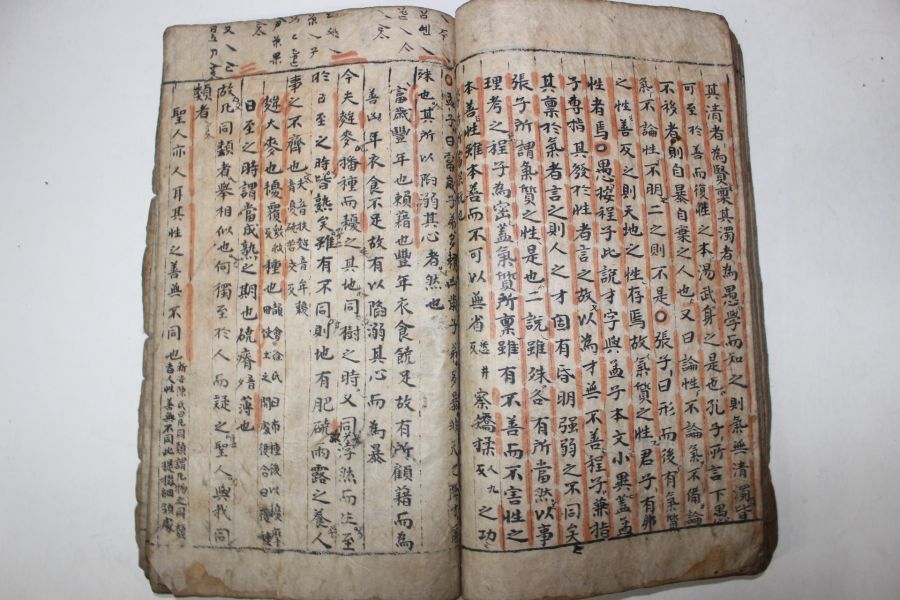 其清者為賢稟其濁者為愚學而知之則氣無清濁皆
可至於善而復性之本湯武身之是也孔子所言下愚
不移者則自暴自棄之人也又曰論性不論氣不備論
氣不論性不明二之則不是〇張子曰形而後有氣質
之性善反之則天地之性存焉故氣質之性君子有弗
性者焉〇愚按程子此說才字與孟子本文小異蓋孟
子專指其發於性者言之故以為才無不善程子兼指
其稟於氣者言之則人之才固有昏明強弱之不同矣
張子所謂氣質之性是也二說雖殊各有所當然以事
理考之程子為密蓋氣質所稟雖有不善而不害性之
本善性雖本善而不可以無省察矯揉之功
〇孟子曰富歲子弟多賴凶歲子弟多暴非天之降才爾
殊也其所以陷溺其心者然也
富歲豐年也賴藉也豐年衣食饒足故有所顧藉而為
善凶年衣食不足故有以陷溺其心而為暴
今夫麰麥播種而耰之其地同樹之時又同浡然而生至
於日至之時皆熟矣雖有不同則地有肥磽雨露之養人
事之不齊也
麰大麥也耰覆種也
日至之時謂當成熟之期也磽瘠薄也
故凡同類者舉相似也何獨至於人而疑之聖人與我同
類者
聖人亦人耳其性之善無不同也